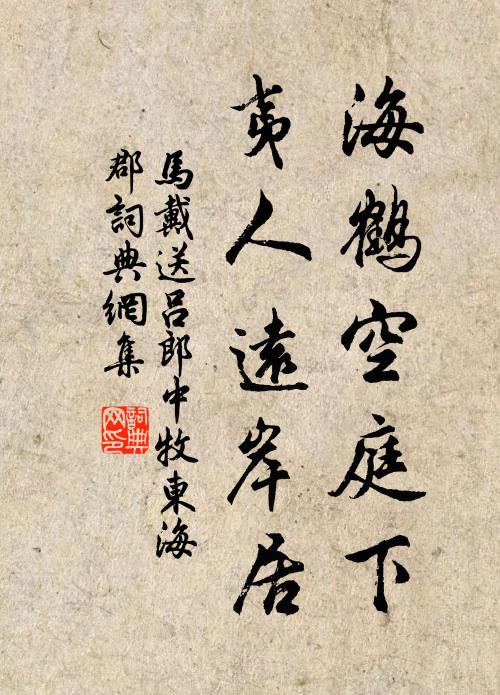 海鶴空庭下
夷人遠岸居
馬戴送呂郎中牧東海
郡詞典網集
詞典
网印